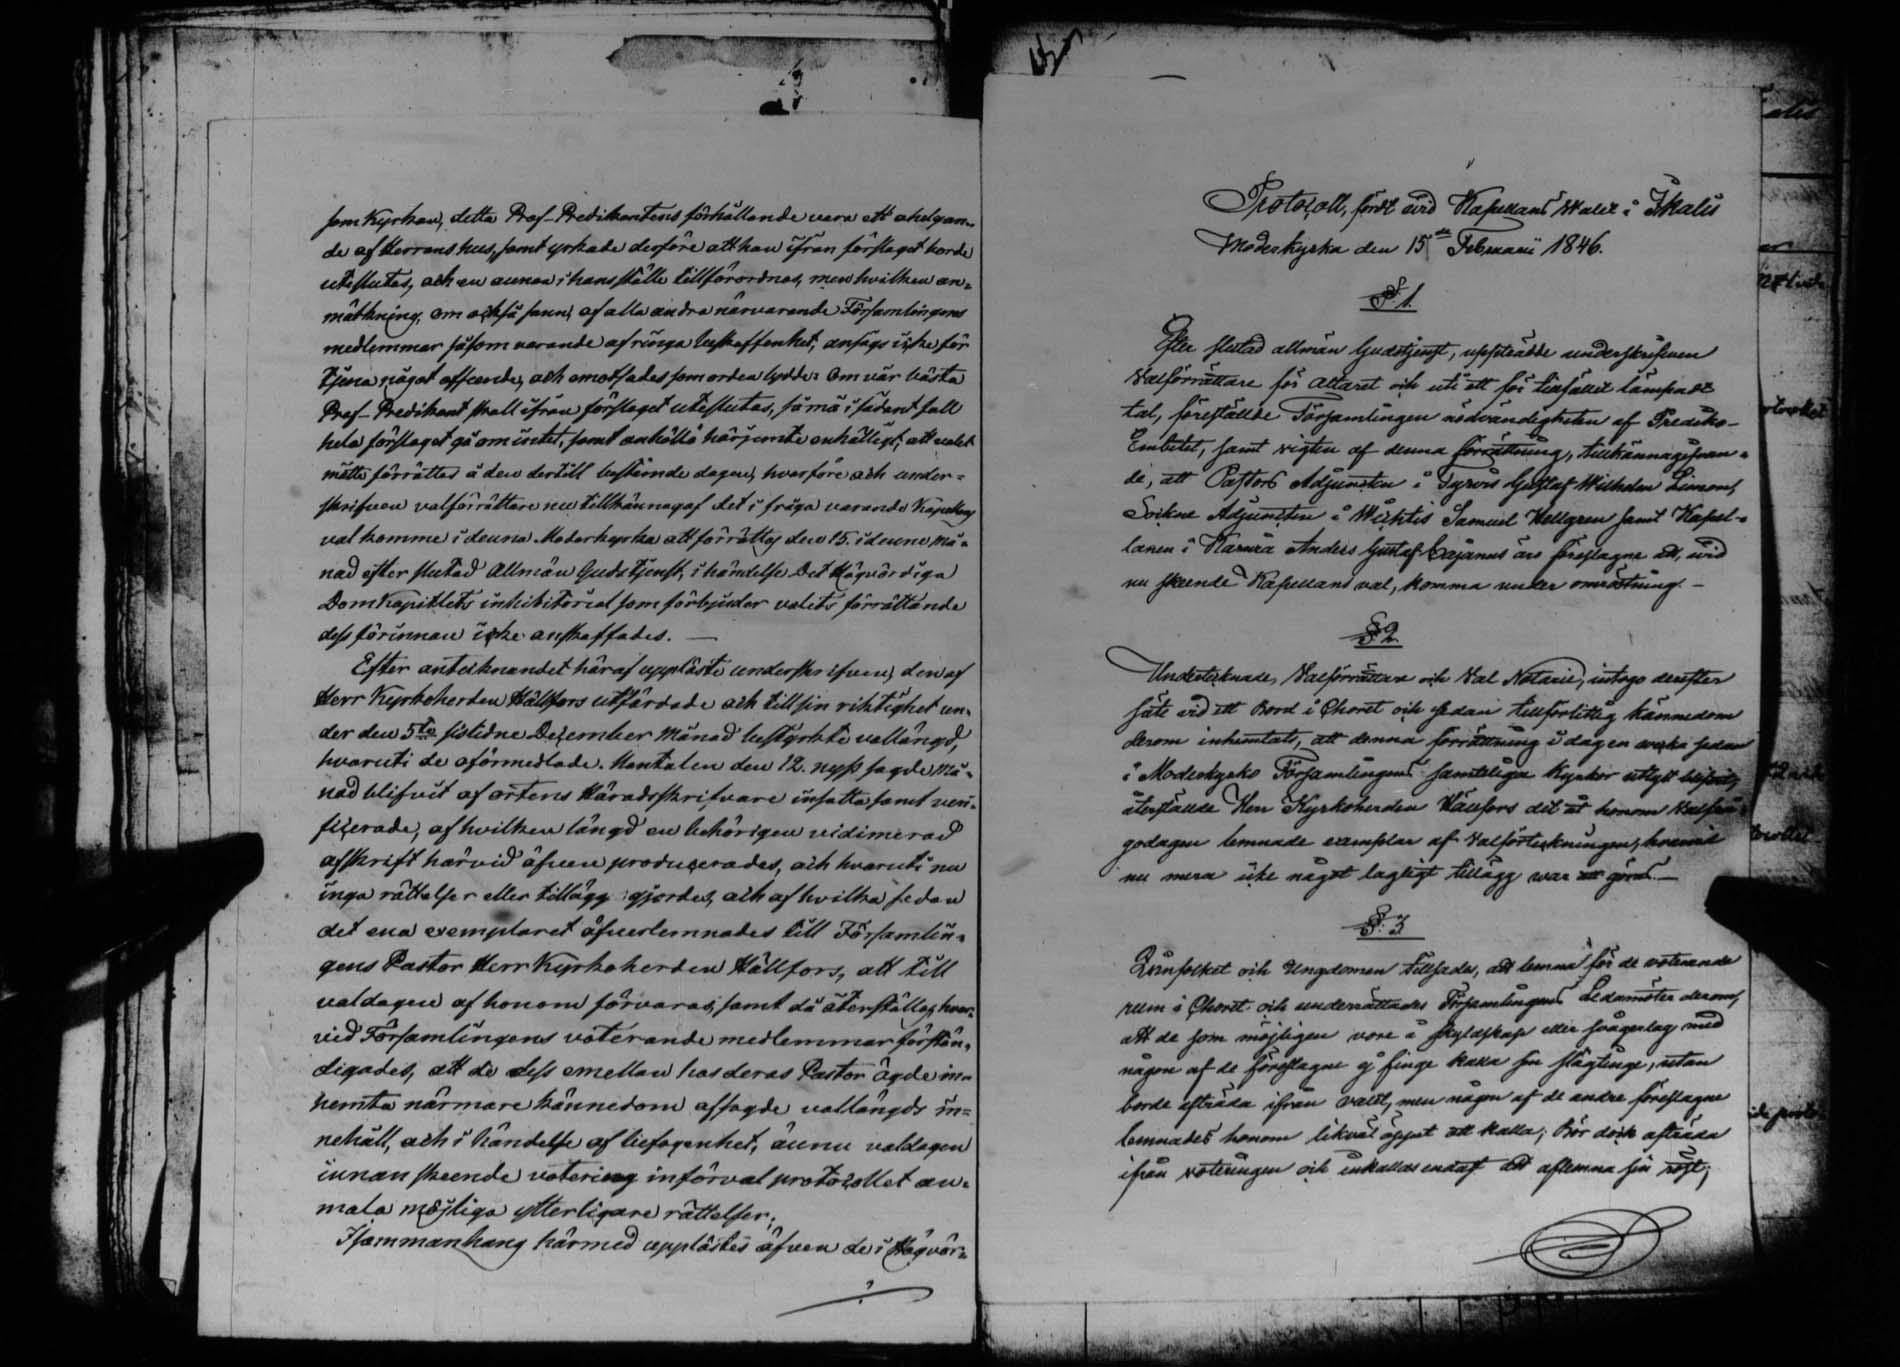 som Kyrkan, detta Prof-Predikantens förhållande vara ett ohelgan-
de af Herrans hus, samt yrkade derföre att han ifrån förslaget borde
uteslutas, och en annan i hans ställe tillförordnas, men hvilken an-
märkning, om också sann, af alla andra närvarande Församlingens
medlemmar såsom varande af ringa beskaffenhet, ansågs icke för-
tjena något afseende, och emotsades som orden lydde: Om vår bästa
Prof-Predikant skall ifrån förslaget uteslutas, så må i sådant fall
hela förslaget gå om intet, samt anhöllo härjemte enhälligt, att valet
måtte förrättas å den dertill bestämde dagen, hvarföre och under-
skrifven valförrättare nu tillkännagaf det i fråga varande Kapellans
val komme i denna Moderkyrka att förrättas den 15. i denne må-
nad efter slutad Allmän Gudstjenst, i händelse Det Högvördiga
DomKapitlets inhibitorial som förbjuder valets förrättande
dess förinnan icke anskaffades. —
Efter antecknandet häraf uppläste underskrifven, den af
Herr Kyrkoherden Hällfors utfärdade och till sin riktighet un-
der den 5te sistledne December Månad bestyrkte vallängd,
hvaruti de oförmedlade Mantalen den 12. nyss sagde Må-
nad blifvit af ortens Häradsskrifvare insatta samt veri-
ficerade, af hvilken längd en behörigen vidimerad
afskrift härvid äfven producerades, och hvaruti nu
inga rättelser eller tillägg gjordes, och af hvilka sedan
det ena exemplaret öfverlemnades till Församlin-
gens Pastor Herr Kyrkoherden Hällfors, att till
valdagen af honom förvaras, samt då återställas, hvar-
vid Församlingens voterande medlemmar förstän-
digades, att de dess emellan hos deras Pastor ägde in-
hemta närmare kännedom af sagde vallängds in-
nehåll, och i händelse af befogenhet, ännu valdagen
innan skeende votering inför val protocollet an-
mala möjliga ytterligare rättelser;
I sammanhang härmed upplästes äfven de i Högvör-
Protocoll, fördt wid Kapellans Walet i Ikalis
Moderkyrka den 15de Februarii 1846.
§ 1.
Efter slutad allmän Gudstjenst, uppträdde underskrifwen
Walförrättare för altaret och uti ett för tillfället lämpadt
tal, förestälde Församlingen nödvändigheten af Prediko-
Embetet, samt wigten af denna förrättning, tillkännagifwan-
de, att Pastors Adjuncten i Tyrvis Gustaf Wilhelm Limon,
Sockne Adjuncten i Wichtis Samuel Hellgren samt Kapel-
lanen i Karvia Anders Gustaf Cajanus äro föreslagne att, wid
nu skeende Kapellans val, komma under omröstning. —
§ 2.
Undertecknade, Walförrättare och Val Notarie, intogo derefter
säte vid ett Bord i Choret och sedan tillförlitlig kännedom
derom inhemtats, att denna förrättning i dagen wecka sedan
i Moderkyrko Församlingens samteliga Kyrkor utlyst blifvit,
återstälde Herr Kyrkoherden Hällfors det åt honom Walfrå-
godagen lemnade exemplar af Valförteckningen, hvarvid
nu mera icke något lagligt tillägg war att göra. —
§. 3
Qvinfolket och Ungdomen tillsades, att lemna för de voterande
rum i Choret och underrättades Församlingens Ledamöter derom,
att de som möjligen vore i skyldskap eller svågerlag med
någon af de föreslagne ej finge kalla sin slägtinge, utan
borde afträda ifrån valet, men någon af de andre föreslagne
lemnades honom likväl öppet att kalla; Bör dock afträda
ifrån voteringen och inkallas endast att aflemna sin röst;